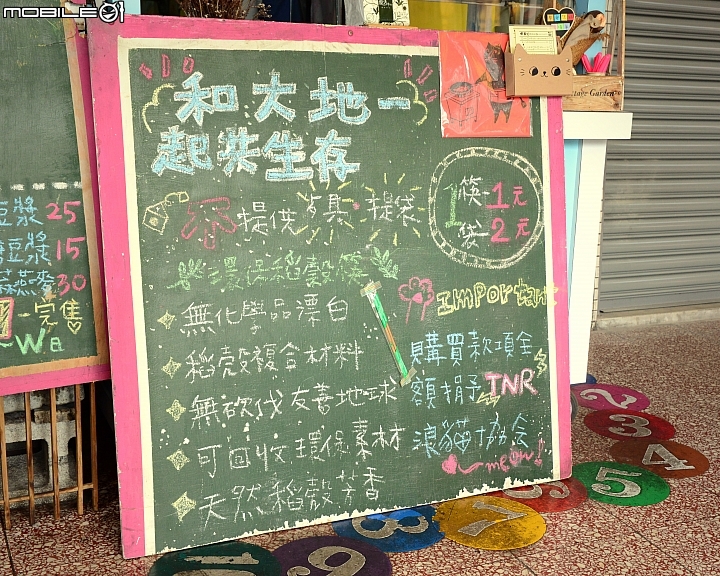 MOBILE01
和大地一
起共生存
不提供 餐具 提袋
1筷-1元
1袋-2元
環保稻殼筷
無化學品漂白
稻殼複合材料
無砍伐友善地球
可回收環保素材
天然稻殼芳香
Important
購買款項全
額捐予TNR
浪貓協會
meow!
豆漿 25
豆漿 15
燕麥 30
完售
Vintage Garden
2
3
4
5
7
8
9